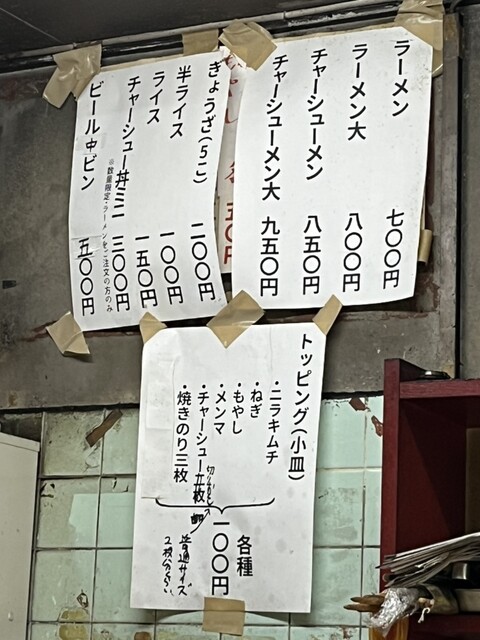 ラーメン 七〇〇円
ラーメン大 八〇〇円
チャーシューメン 八五〇円
チャーシューメン大 九五〇円
ぎょうざ(5こ) 二〇〇円
半ライス 一〇〇円
ライス 一五〇円
チャーシュー丼ミニ 三〇〇円
※数量限定・ラーメンをご注文の方のみ
ビール中ビン 五〇〇円
五〇円
トッピング(小皿)
・ニラキムチ
・ねぎ
・もやし
・メンマ
・チャーシュー立枚
・焼きのり三枚
各種
一〇〇円
普通サイズ
2枚分くらい